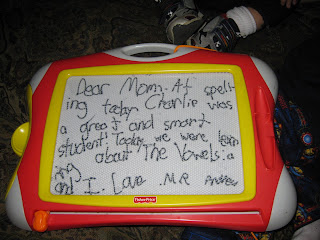 Dear Mom, At spell-
ing today Charlie was
a great and smart
student! Today we were lern
about The Vowels: a
and I. Love MR Andrew
Fisher-Price